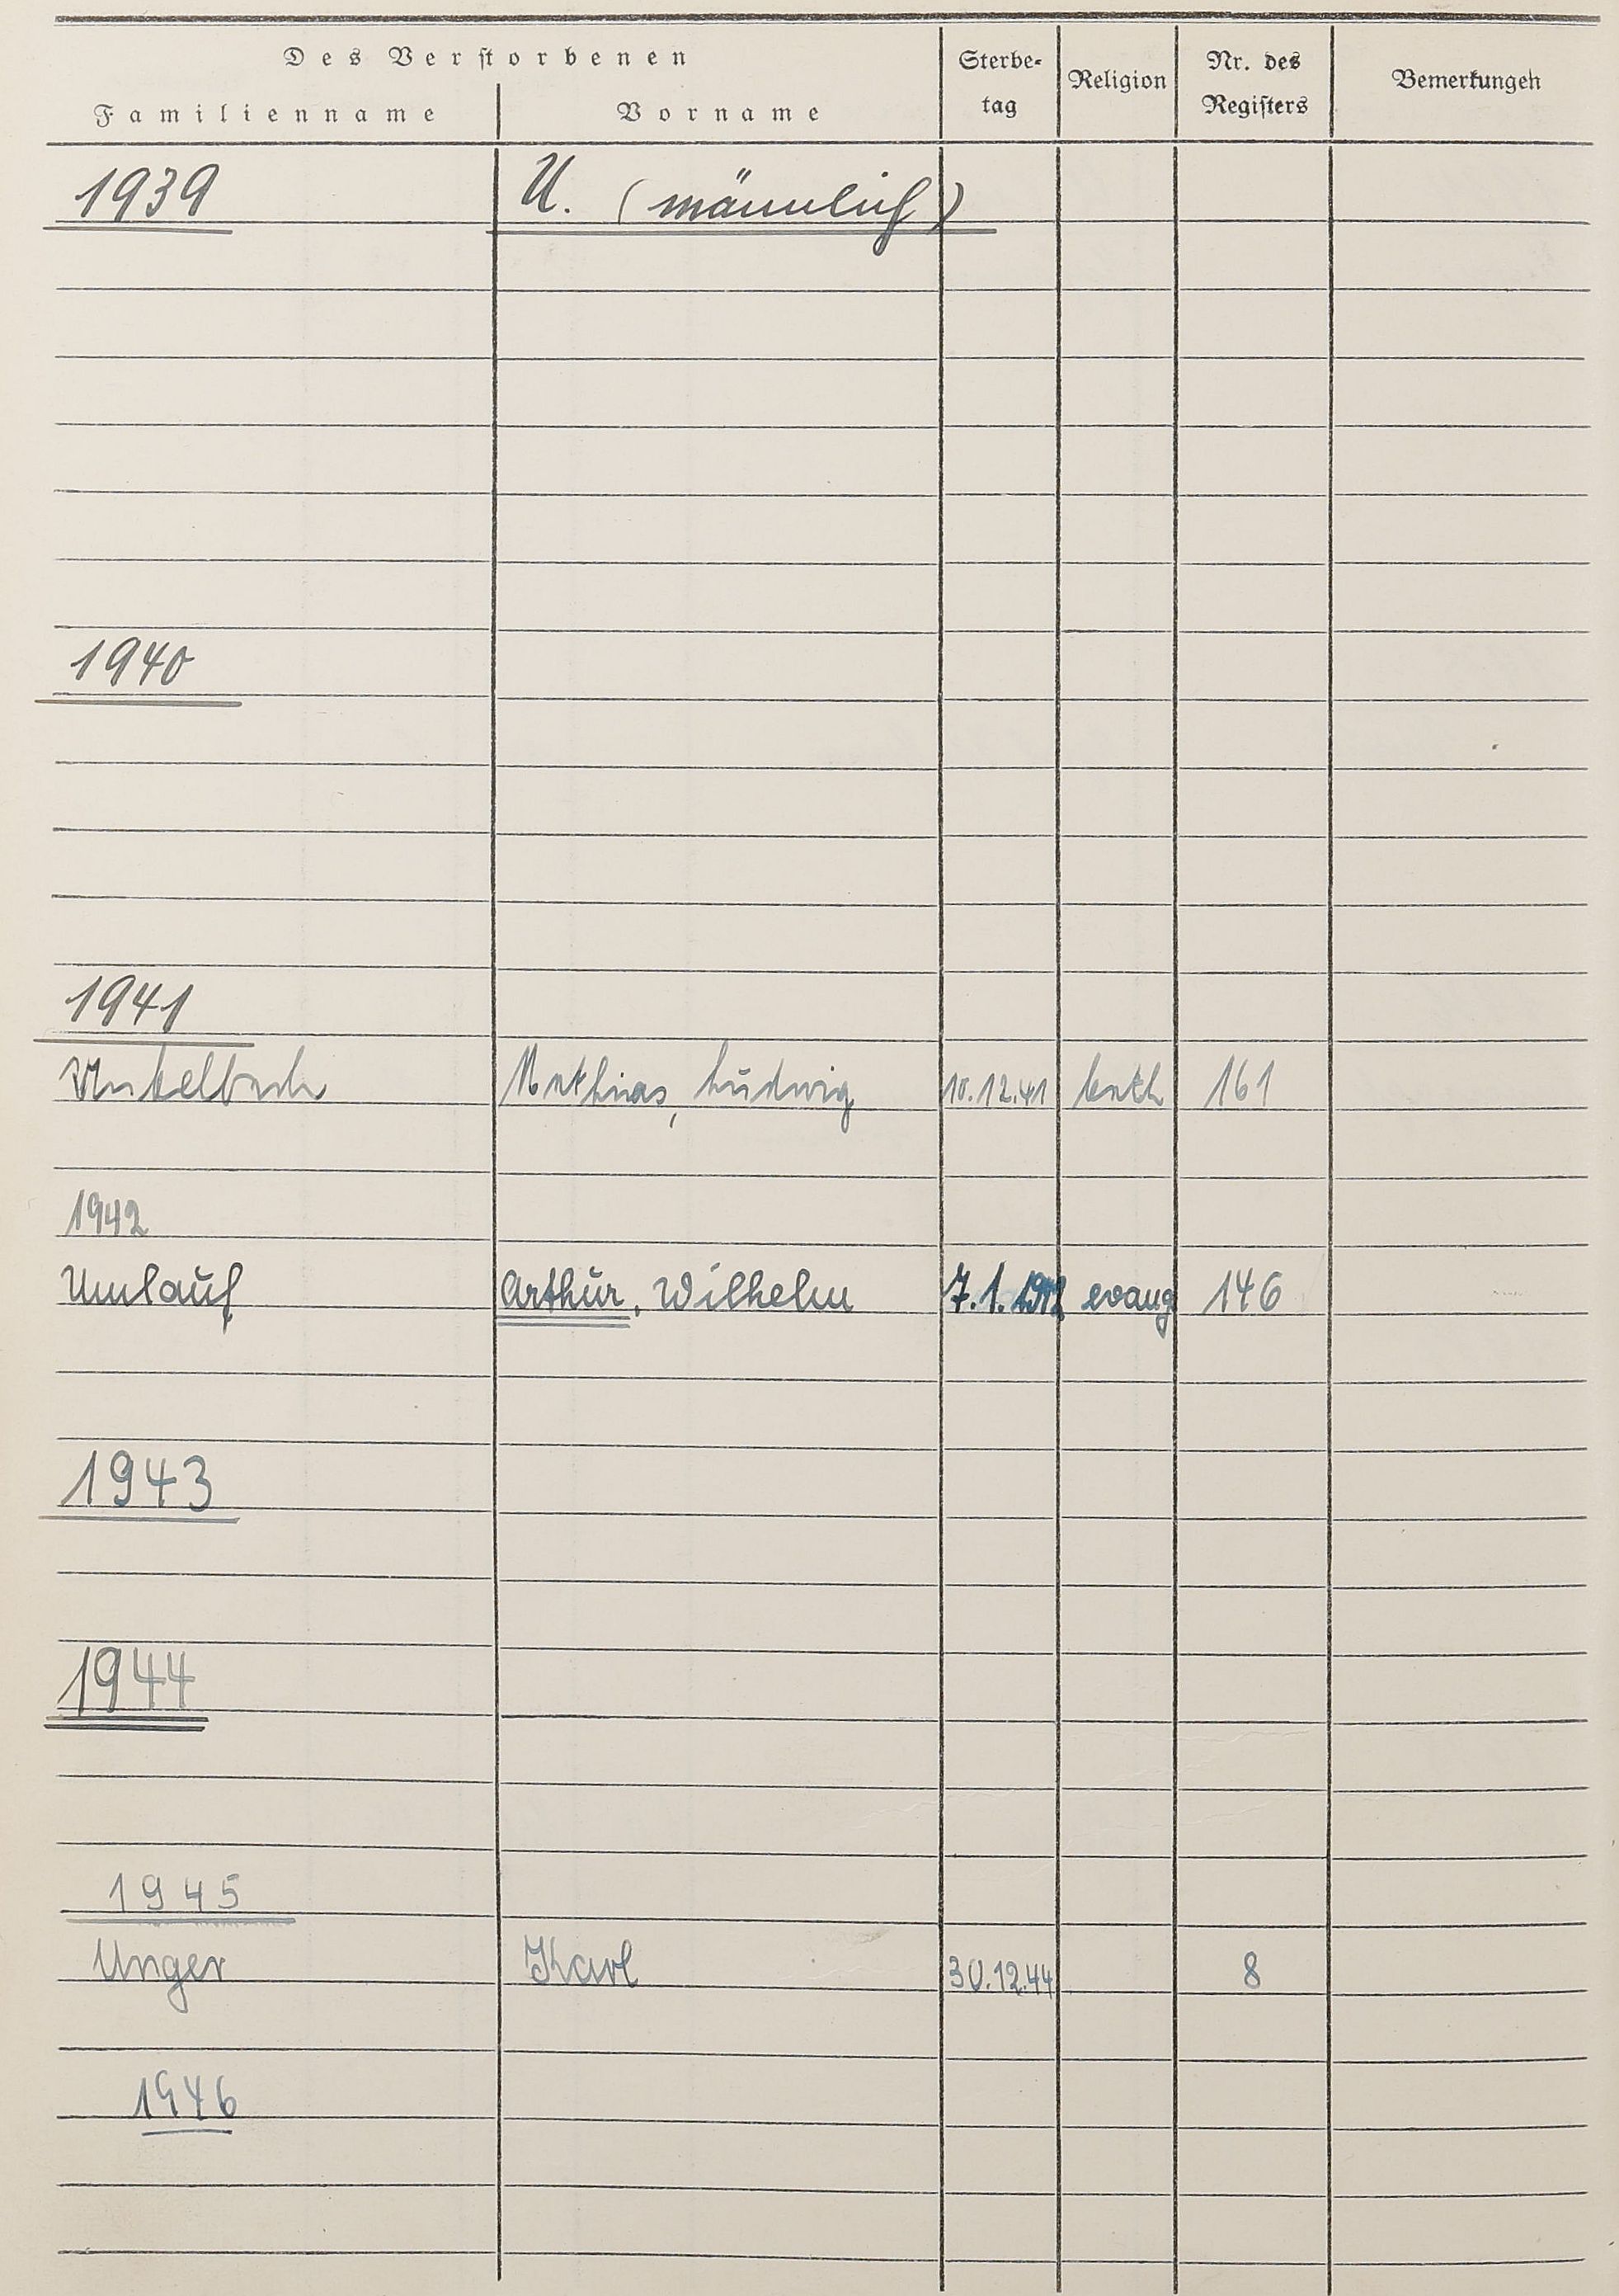 Des Verstorbenen
Familienname Vorname Sterbe-tag Religion Nr. des Registers Bemerkungen
1939 U. (männlich)
1940
1941
Unkelbach Mathias, Ludwig 10.12.41 kath 161
1942
Umlauf Arthur, Wilhelm 7.1.1942 evang 146
1943
1944
1945
Unger Karl 30.12.44 8
1946